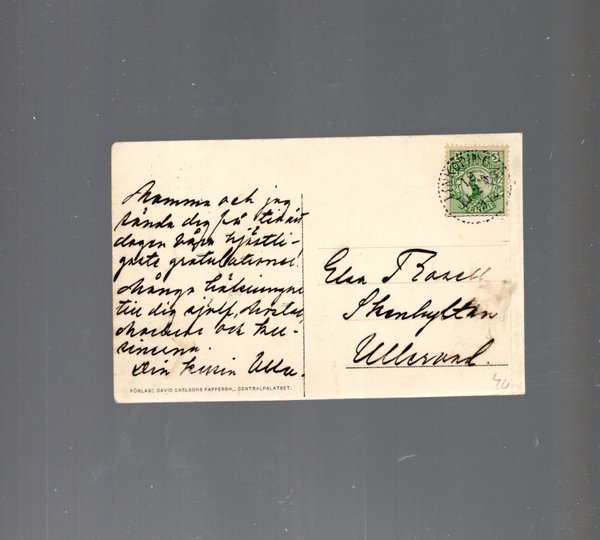 Mamma och jag
sända dig på
dagen våra hjärtli-
gaste gratulationer.
Många hälsningar
till dig själf, Moster,
och ku-
sinerna.
Din kusin Ulla.
FÖRLAG: DAVID CARLSONS PAPPERSH., CENTRALPALATSET.
LINKÖPING
5
Elsa
Ullervad.